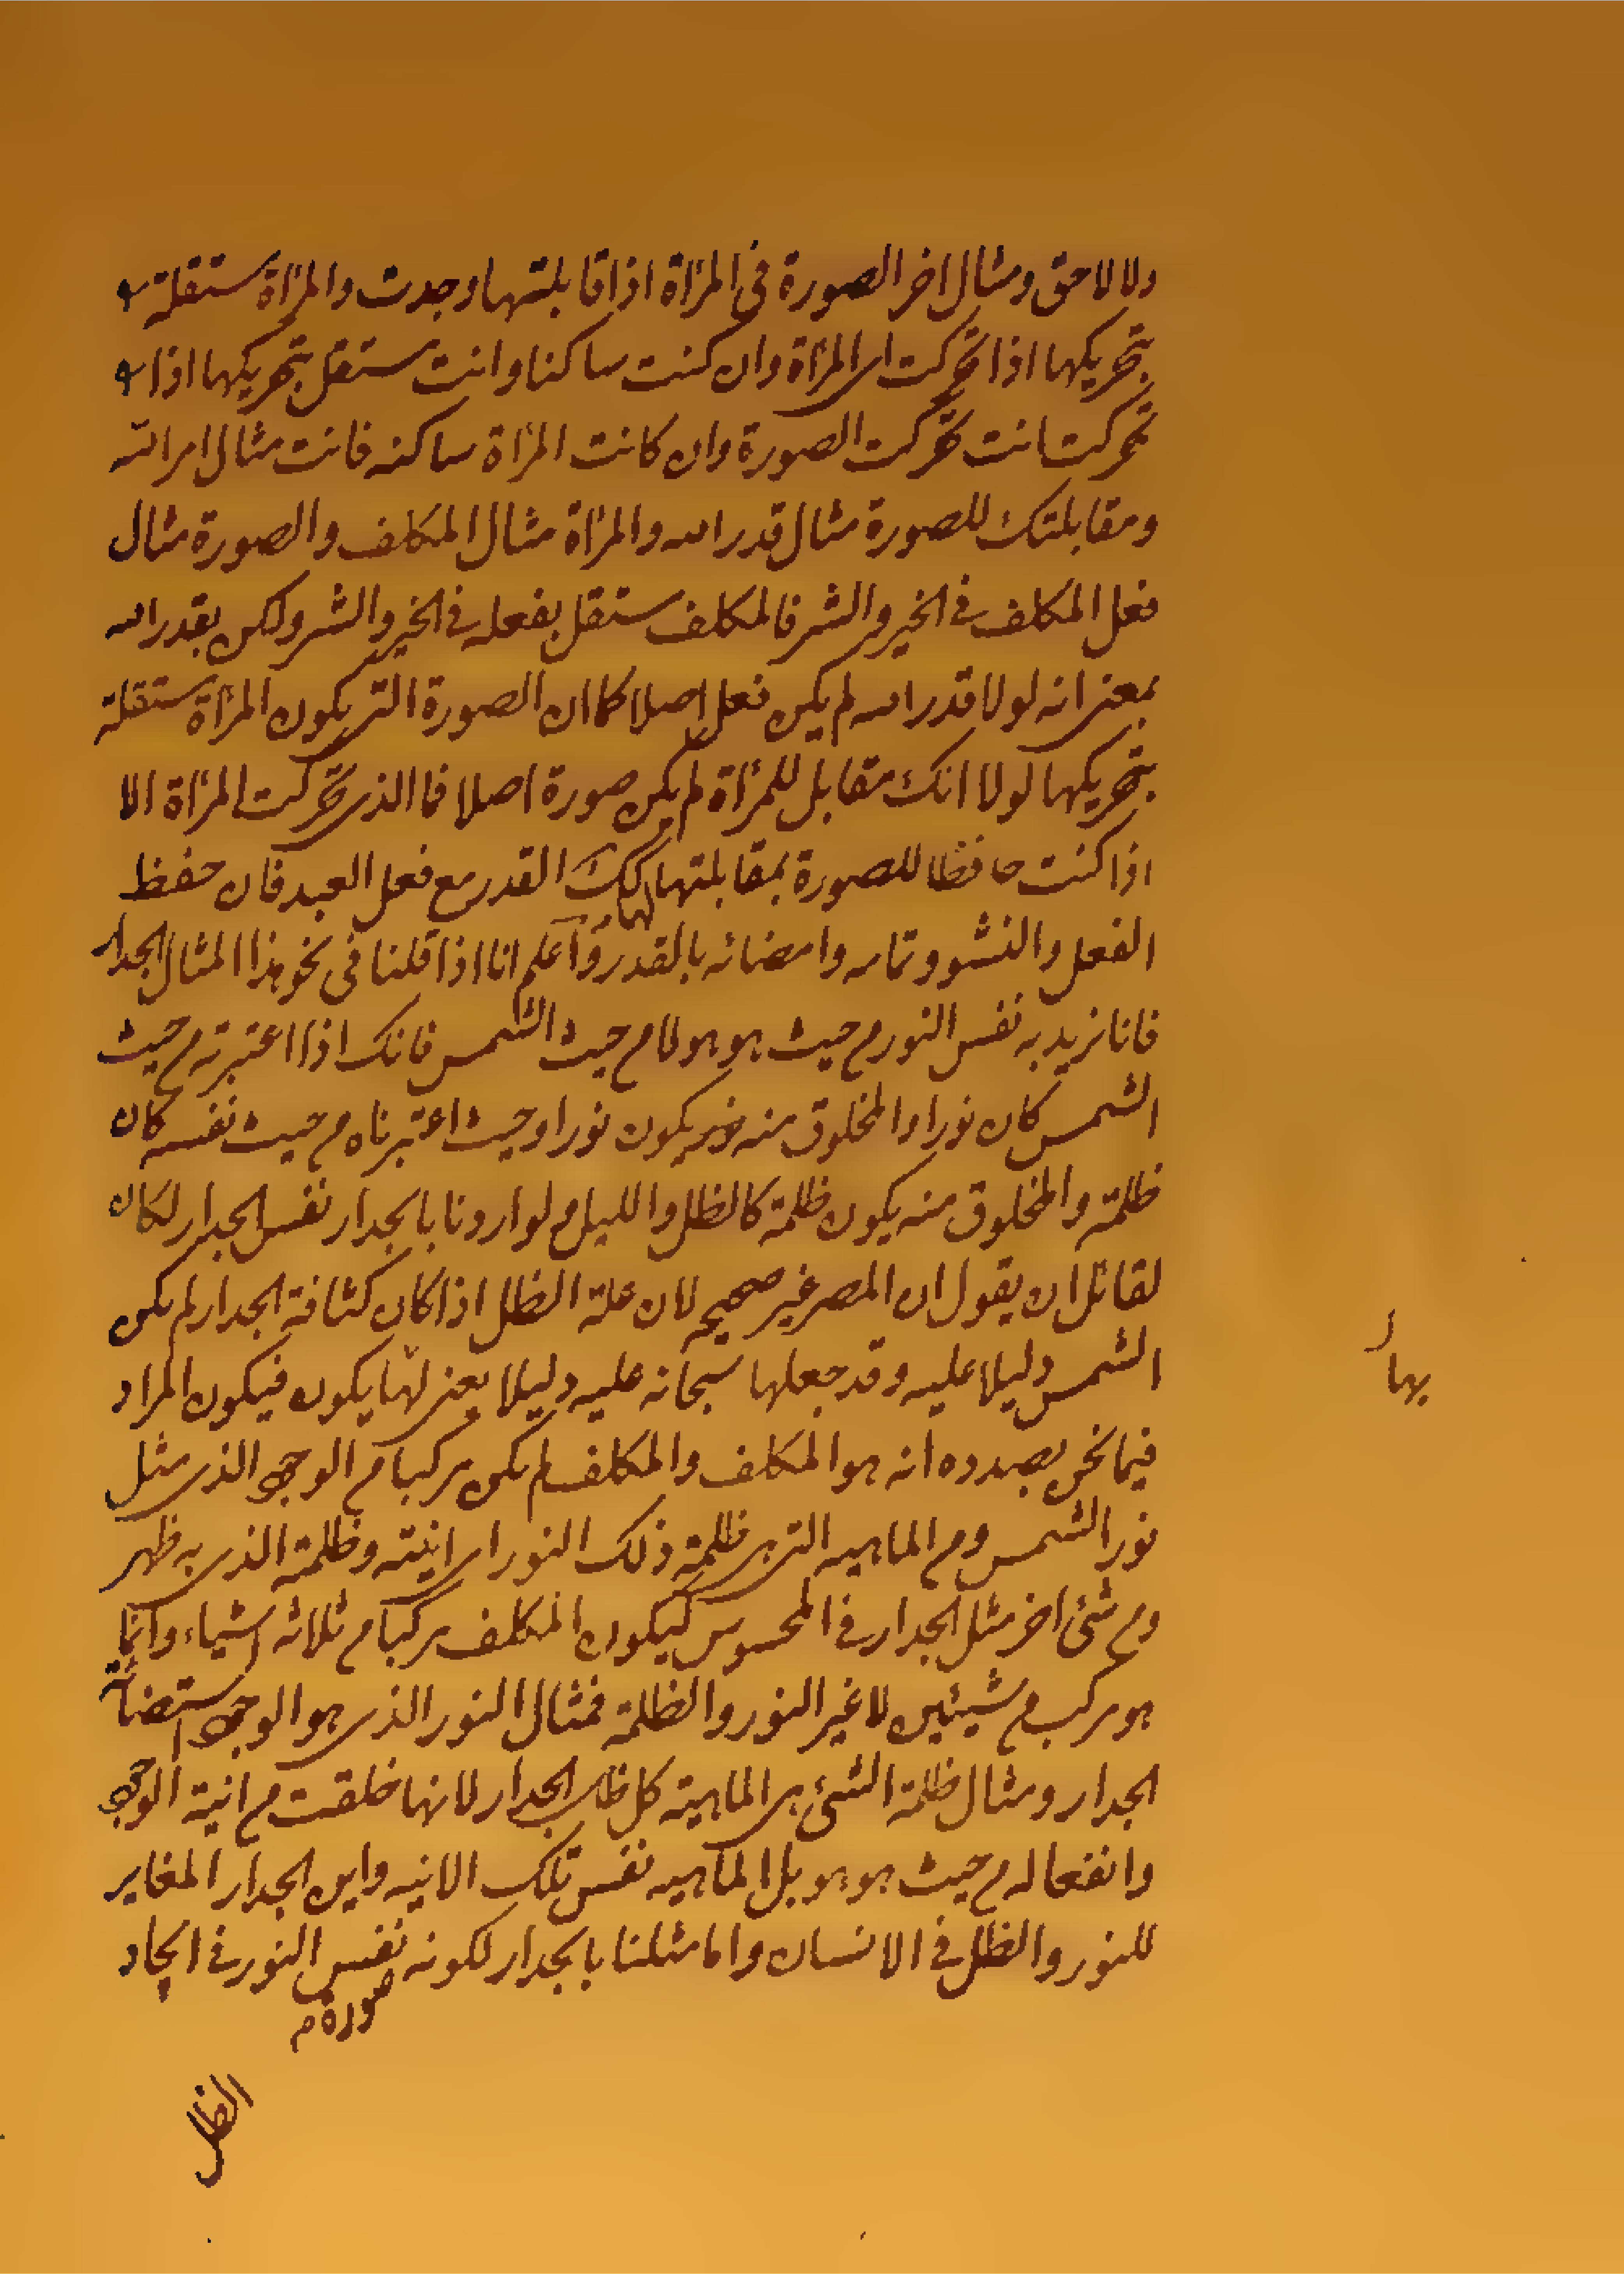 ولا لاحق ومثال اخر الصورة في المرآة اذا قابلتها وجدت والمرآة مستقلة
بتحريكها اذا تحركت اي المرآة وان كنت ساكنا وانت مستقل بتحريكها اذا
تحركت انت تحركت الصورة وان كانت المرآة ساكنه فانت مثال امر الله
ومقابلتك للصورة مثال قدر الله والمرآة مثال المكلف والصورة مثال
فعل المكلف في الخير والشر فالمكلف مستقل بفعله في الخير والشر ولكن بقدر الله
بمعنى انه لولا قدر الله لم يكن فعل اصلا كما ان الصورة التي يكون المرآة مستقلة
بتحريكها لولا انك مقابل للمرآة لم يكن صورة اصلا فما الذي تحركت المرآة الا
اذا كنت حافظا للصورة بمقابلتها لها كك القدر مع فعل العبد فان حفظ
الفعل والنشو وتمامه وامضائه بالقدر واعلم انا اذا قلنا في نحو هذا المثال الجدار
فانا نريد به نفس النور م حيث هو هو لا م حيث الشمس فانك اذا اعتبرته م حيث
الشمس كان نورا والمخلوق منه يكون نورا وحيث اعتبرناه م حيث نفسه كان
ظلمة والمخلوق منه يكون ظلمة كالظل والليل م لو اردنا بالجدار نفس الجدار لكان
لقائل ان يقول ان المصر غير صحيح لان علة الظل اذا كان كثافة الجدار لم يكن
الشمس دليلا عليه وقد جعلها سبحانه عليه دليلا يعني بها يكون فيكون المراد
فيما نحن بصدده انه هو المكلف والمكلف لم يكن مركبا م الوجود الذي مثل
نور الشمس وم الماهيه التي هي ظلمة ذلك النور اي انيته وظلمة الذي به ظهر
وم شئ اخر مثل الجدار في المحسوس ليكون المكلف مركبا م ثلاثه اشياء وانما
هو مركب م شيئين لا غير النور والظلمة فمثال النور الذي هو الوجود استضائة
الجدار ومثال ظلمة الشئ هي الماهية كل ظل الجدار لانها خلقت م انية الوجود
وانفعاله م حيث هو هو بل الماهيه نفس تلك الانيه واين الجدار المغاير
للنور والظل في الانسان وا ما مثلنا بالجدار لكونه نفس النور في ايجاد
صورة م
الظل
بها